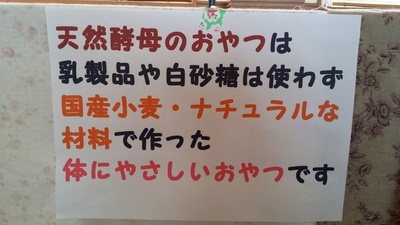 天然酵母のおやつは
乳製品や白砂糖は使わず
国産小麦・ナチュラルな
材料で作った
体にやさしいおやつです